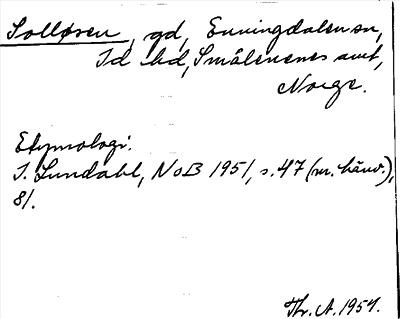 Solløsen, gd, Enningdalen sn,
Id hd, Smålenenes amt,
Norge.
Etymologi:
I. Lundahl, NoB 1951, s. 47 (m. hänv.),
81.
Thr. A. 1957.